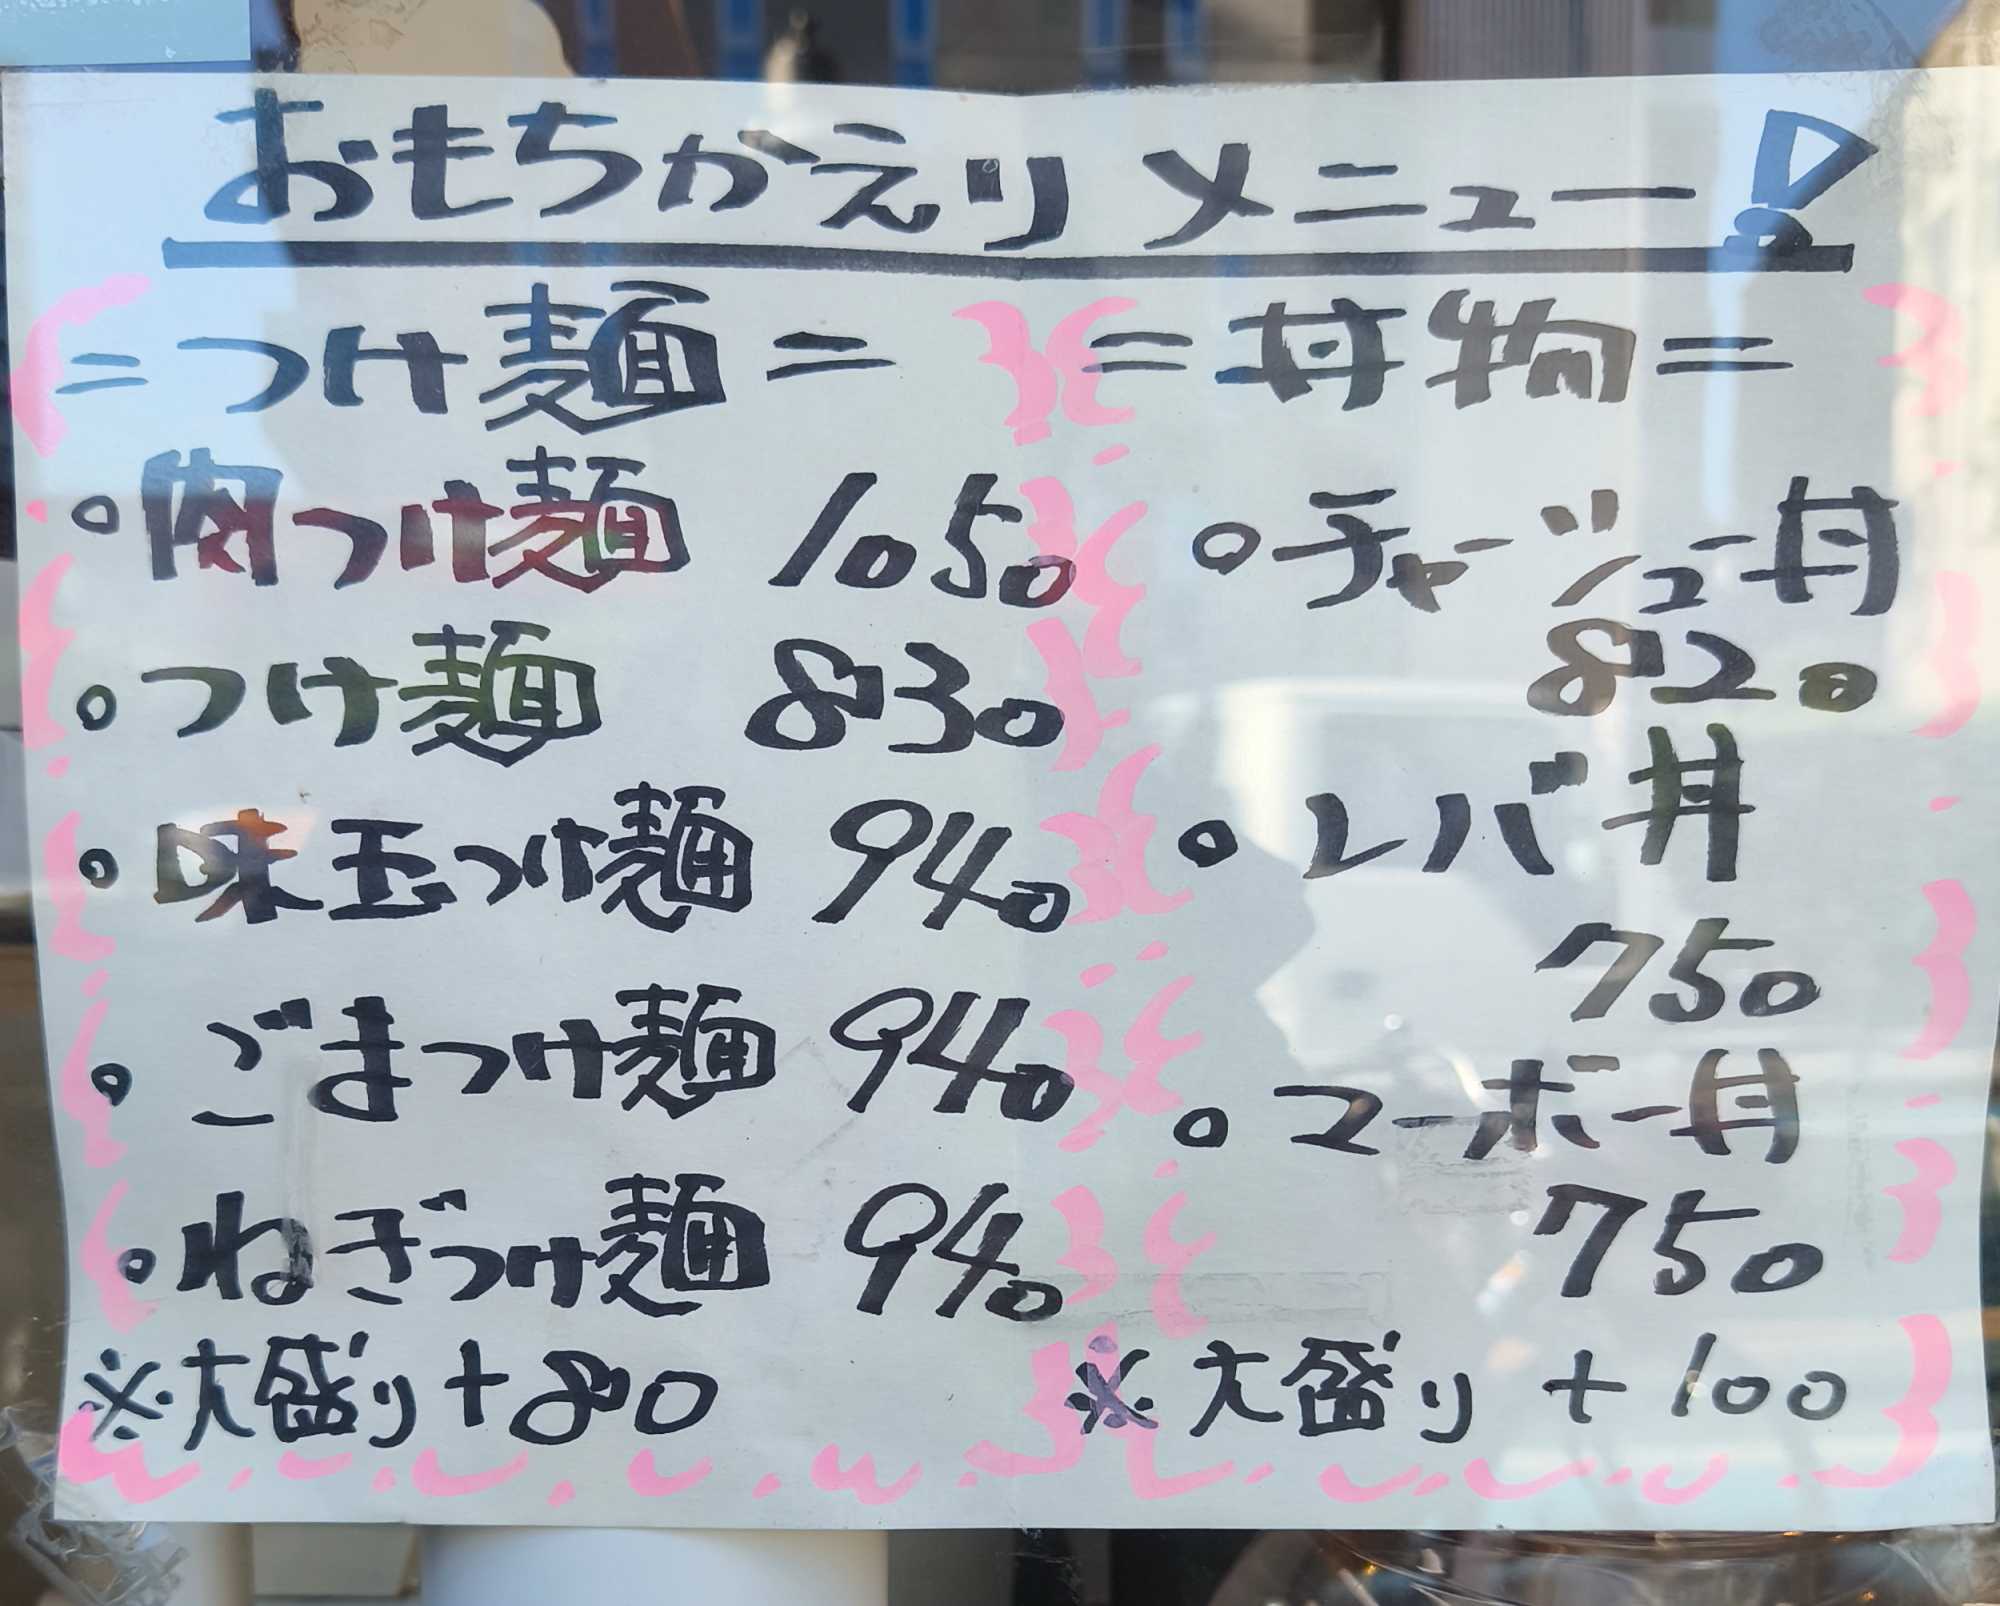 おもちかえりメニュー!
=つけ麺=
。肉つけ麺 1050
。つけ麺 830
。味玉つけ麺 940
。ごまつけ麺 940
。ねぎつけ麺 940
※大盛り+80
=丼物=
。チャーシュー丼
820
。レバ丼
750
。マーボー丼
750
※大盛り+100